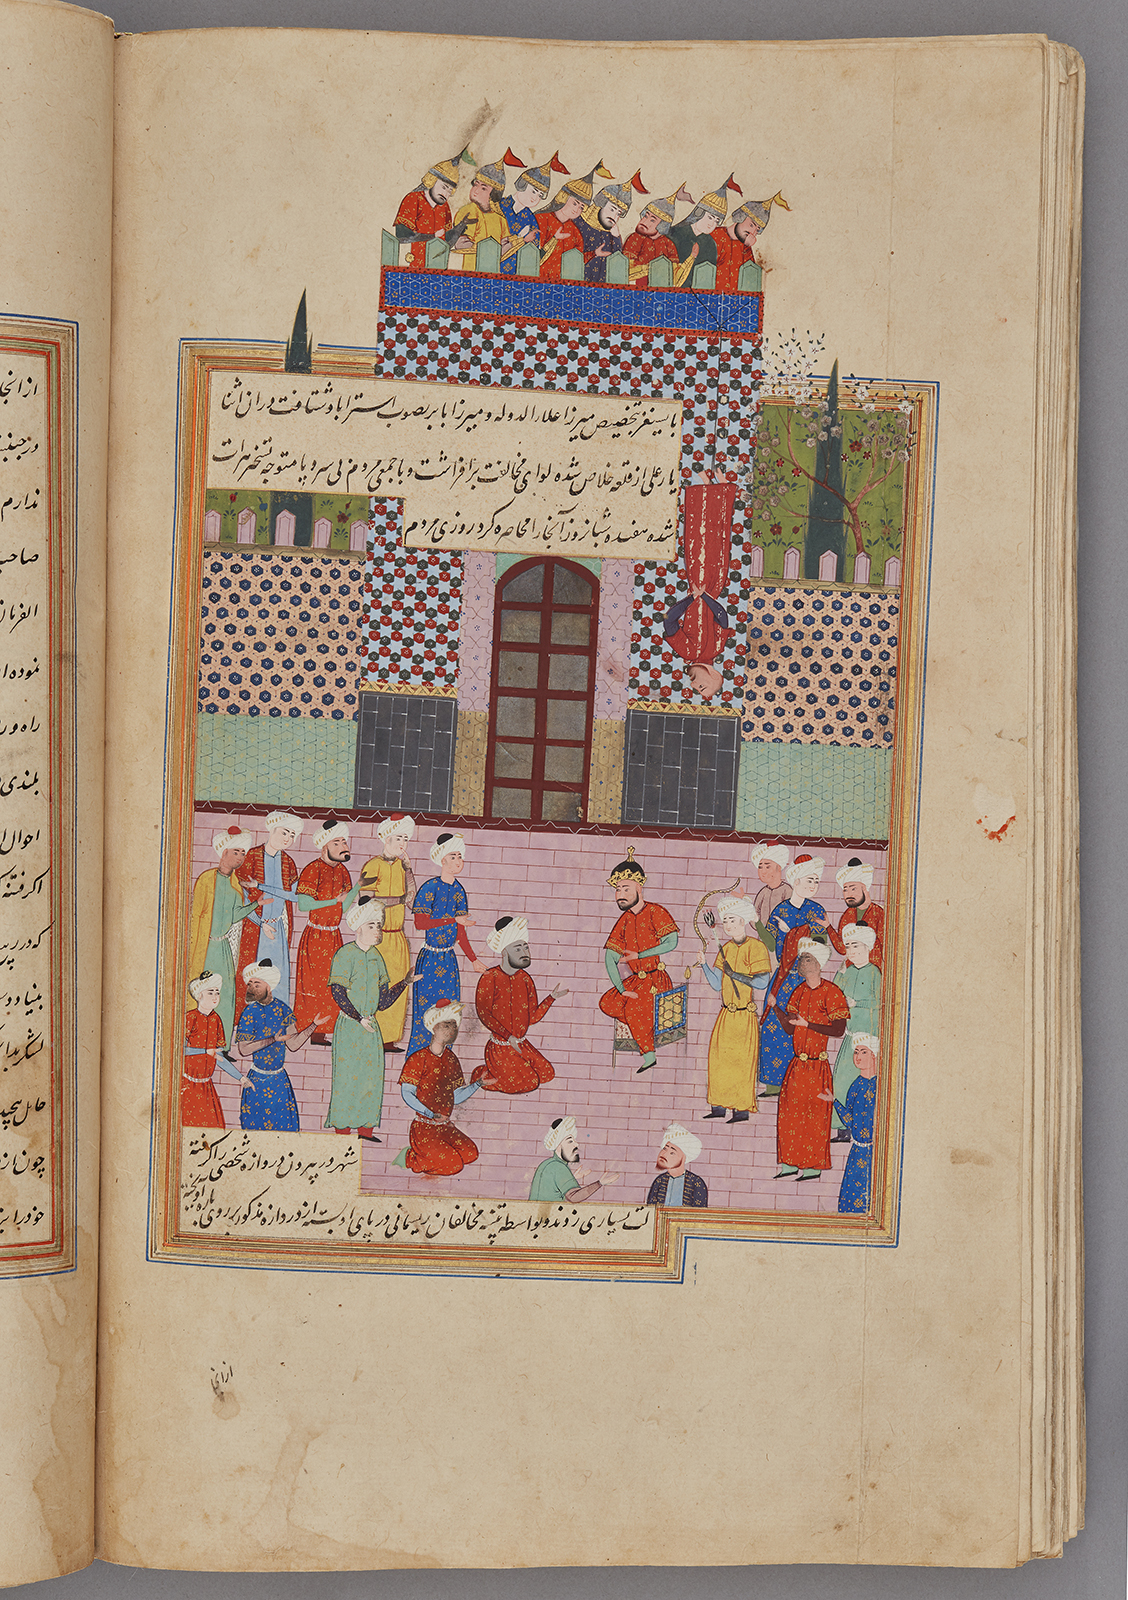 بایسنغر بتخصیص میرزا علاء الدوله و میرزا بابر بصوب استراباد شتافت در ان اثنا
یار علی از قلعه خلاص شده لوای مخالفت برافراشت و با جمعی مردم بی سر و پا متوجه تسخیر هرات
شده هفده شبانروز آنجا را محاصره کرد روزی مردم
شهر در بیرون دروازه شخصی را کرفته
لت بسیاری زدند و بواسطه تنبیه مخالفان ریسمانی در پای او بسته از دروازه مذکور بر روی باره آویخته
از انجا
از انجا
ندارم
الفرمان
نموده
راه و
بلندی
احوال
اکر فتنه
که در
لشکر
چون از
خود را